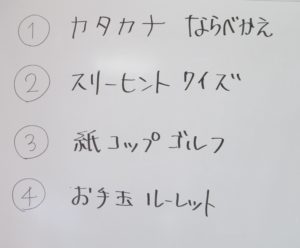 ① カタカナ ならべかえ
② スリーヒント クイズ
③ 紙コップ ゴルフ
④ お手玉 ルーレット